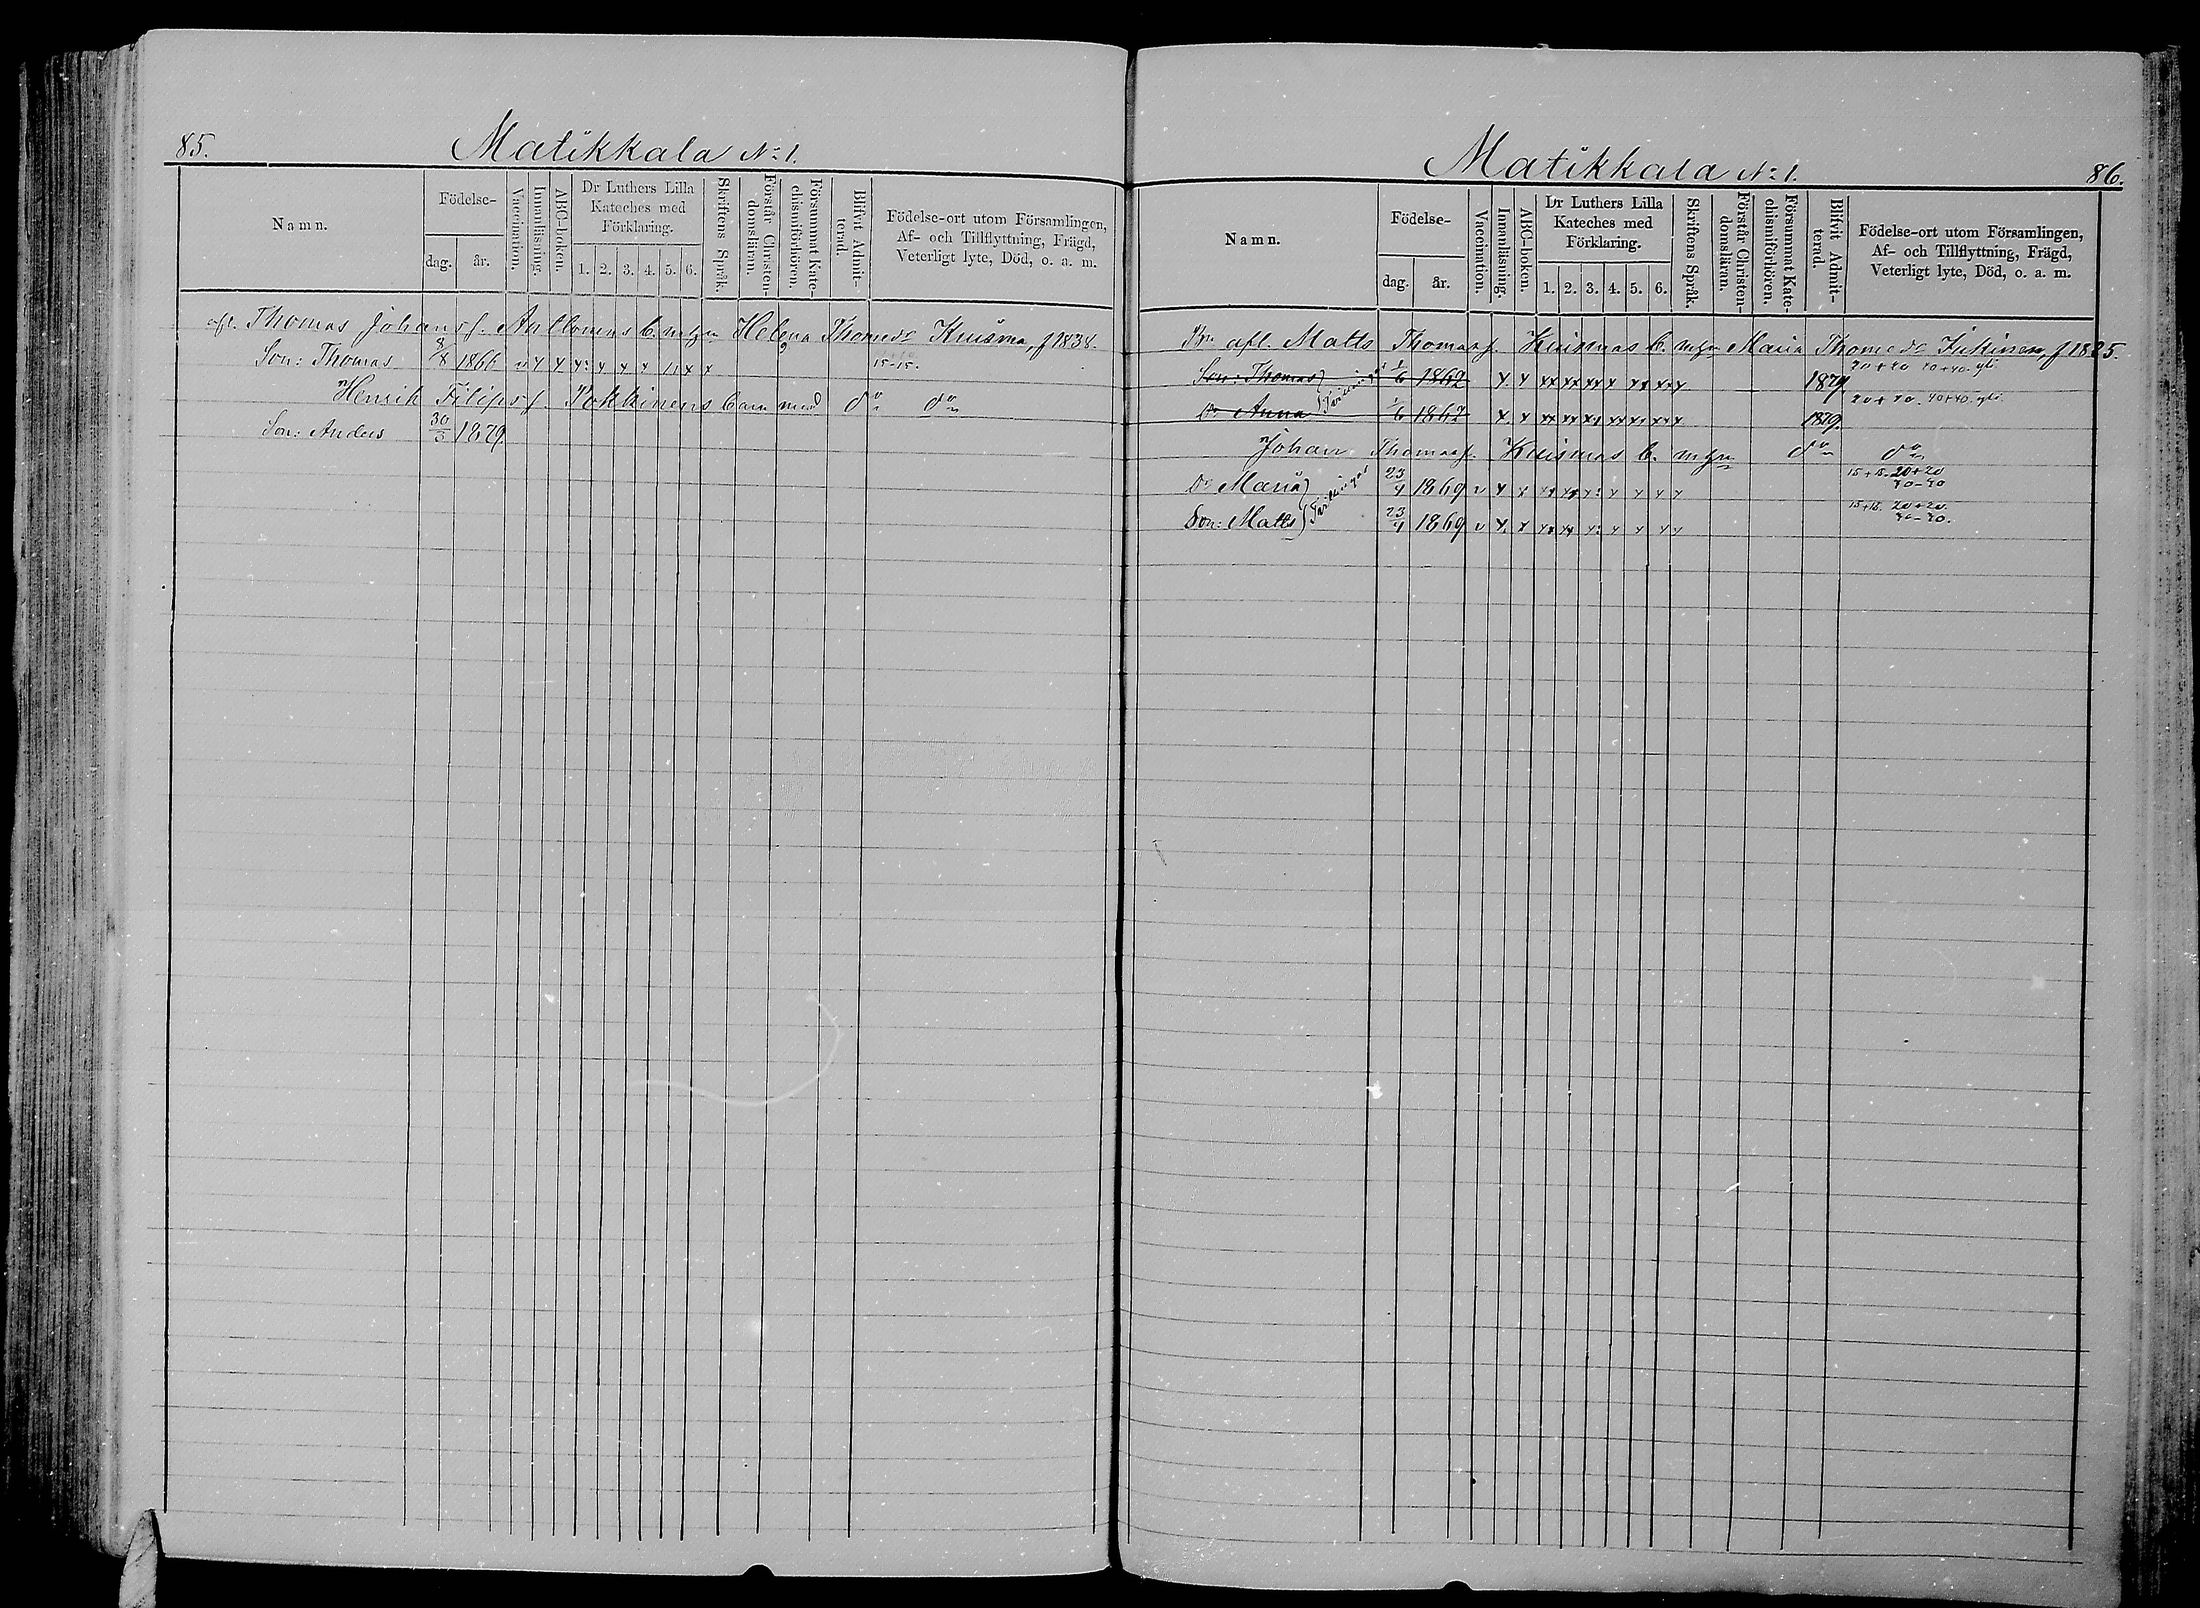 85.
Matikkala No 1.
Namn.
Födelse-
dag.
år.
Vaccination.
Innanläsning.
ABC-boken.
Dr Luthers Lilla
Kateches med
Förklaring.
1. 2. 3. 4. 5. 6.
Skriftens Språk.
Förstår Christen-
domsläran.
Försummat Kate-
chismiförhören.
Blifvit Admit-
terad.
Födelse-ort utom Församlingen,
Af- och Tillflyttning, Frägd,
Veterligt lyte, Död, o. a. m.
afl. Thomas Johansf. Anttonens b. m. h. Helena Thomædr Kuisma, f 1838.
Son: Thomas 8/8 1866 v x x x: x x x x x 15-15.
Henrik Filipsf. Pokkinens barn med do do
Son: Anders 30/3 1879.
Matikkala No 1.
86.
Namn.
Födelse-
dag.
år.
Vaccination.
Innanläsning.
ABC-boken.
Dr Luthers Lilla
Kateches med
Förklaring.
1. 2. 3. 4. 5. 6.
Skriftens Språk.
Förstår Christen-
domsläran.
Försummat Kate-
chismiförhören.
Blifvit Admit-
terad.
Födelse-ort utom Församlingen,
Af- och Tillflyttning, Frägd,
Veterligt lyte, Död, o. a. m.
afl. Matts Thomasf. Kuismas b. Maria Thomædr f 1825.
Son: Thomas 1/6 1862 x x xx xx xx xx xx 1879
Dr Anna 1/6 1862 x x xx xx xx xx xx 1879.
Johan Thomasf. Kuismas b. do do
Dr Maria 23/4 1869 v x x xx xx x: x x x x 15+15. 20+20
40-40
Son: Matts Tvillingar 23/4 1869 v x x xx xx x: x x x x 15+15. 20+20.
40-40.